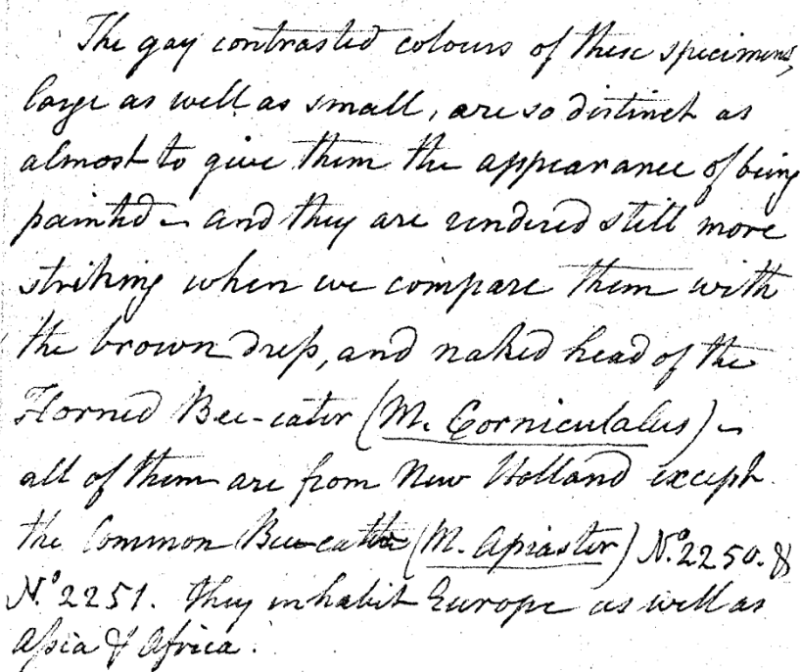 The gay contrasted colours of these specimens,
large as well as small, are so distinct as
almost to give them the appearance of being
painted – and they are rendered still more
striking when we compare them with
the brown dress, and naked head of the
Horned Bee-eater (M. Corniculatus) –
all of them are from New Holland except
the Common Bee-eater (M. Apiaster) No. 2250. &
No. 2251. they inhabit Europe as well as
Asia & Africa.